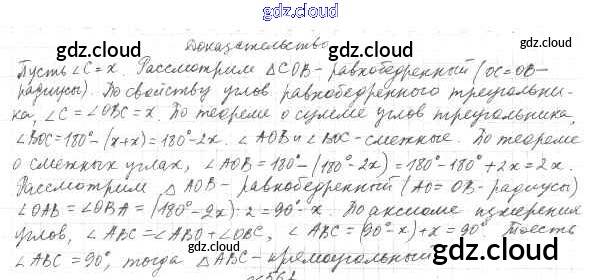 gdz.cloud
gdz.cloud
Доказательство
gdz.cloud gdz.cloud
Пусть ∠C = x. Рассмотрим △COB - равнобедренный (OC=OB-
радиусы). По свойству углов равнобедренного треугольни-
ка, ∠C = ∠OBC = x. По теореме о сумме углов треугольника,
∠BOC = 180° - (x+x) = 180° - 2x. ∠AOB и ∠BOC - смежные. По теореме
о смежных углах, ∠AOB = 180° - (180° - 2x) = 180° - 180° + 2x = 2x.
Рассмотрим △AOB - равнобедренный (AO = OB - радиусы)
∠OAB = ∠OBA = (180° - 2x) : 2 = 90° - x. По аксиоме измерения
углов, ∠ABC = ∠ABO + ∠OBC, ∠ABC = (90° - x) + x = 90°. Тоесть
∠ABC = 90°, тогда △ABC - прямоугольный
gdz.cloud gdz.cloud
gdz.cloud